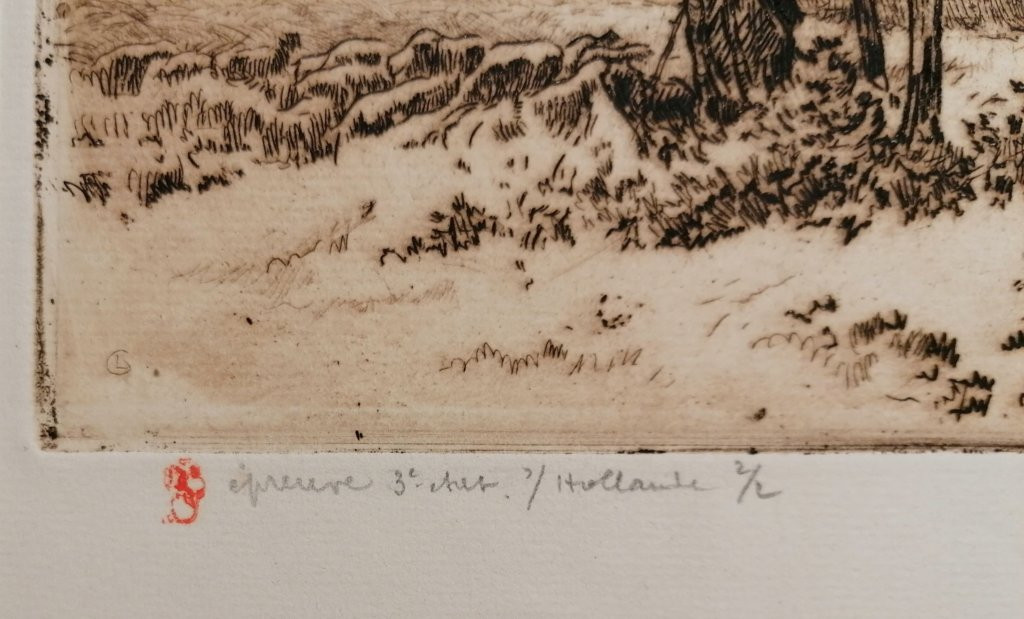 épreuve 3e état. s/ Hollande 2/2